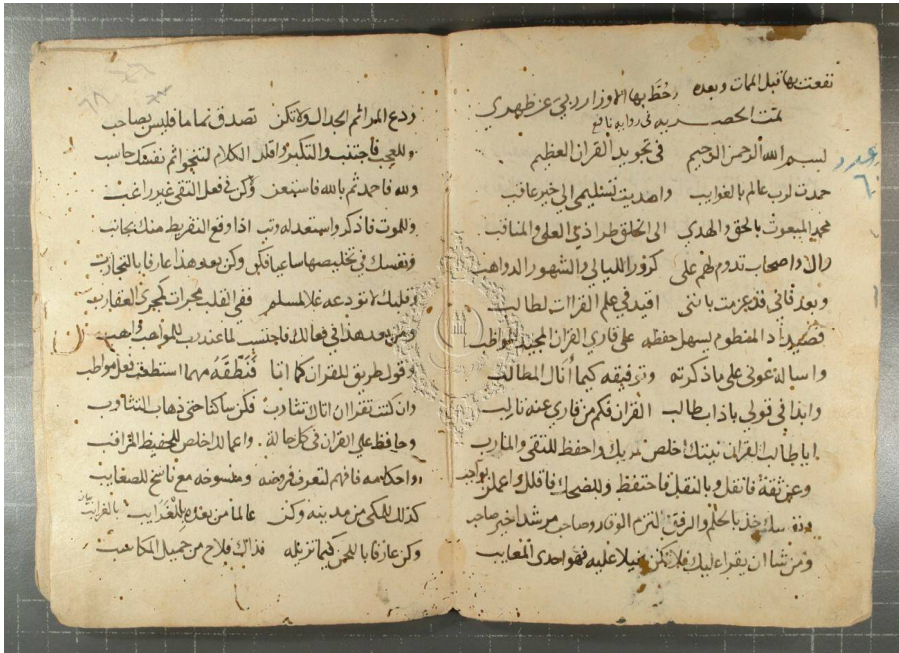 نفعت بها قبل الممات وبعده وحُطَّ بها الاوزار ربي عن ظهري
تمت الحصريه في رواية نافع
بسم الله الرحمن الرحيم في تجويد القران العظيم
حمدت لرب عالم بالغوايب واهديت تسليمي الى خير عاقب
محمد المبعوث بالحق والهدي الى الخلق طرا ذي العلى والمناقب
وال واصحاب تدوم لهم على كرور الليالي والشهور الدواهب
وبعد فاني قد عزمت بانني افيد في علم القراات لطالب
قصيدا المنظوم يسهل حفظه على قاري القران المجيد المواظب
واساله عوني على ما ذكرته وتوفيقه كيما أنال المطالب
وابدا في قولي باداب طالب القران فكم من قاري عنه نا
ايا طالب القران نيتك اخلص لربك واحفظ للتقى والمارب
وعن ثقة فانقل وبالنقل فاحتفظ وللضحك فاقلل واعملن بواجب
ونفسك خذ بالحلم والرفق التزم الوقار وصاحب مرشدا خير صاحب
ومن شا ان يقرا عليك فلا تكن ميلا عليه فهو احدى المعايب
ودع المراثم الجدال ولا تكن تصدق نماما فليس بصاحب
وللعجب فاجتنب والتكبر واقلل الكلام لتنجوا ثم نفسك حاسب
ولله فاحمد ثم بالله فاستعن وكن في فعل التقى غير راغب
وللموت فاذكر واستعد له وتب اذا وقع التفريط منك بجانب
ونفسك في تخليصها ساعيا فكن وكن بعد هذا عارفا بالتجارب
وقلبك لا تودعه غلا لمسلم ففي القلب مجرات كمجرى العقارب
ومن بعد هذا في فعالك فاجتنب لما عند رب للمواهب واهب
وقول طريق للقران كما اتا فَنُطْقَهُ مهما استطعت فعل مواظب
وان كنت تقرا ان اتاك تثاوب فكن ساكتا حتى ذهاب التثاوب
وحافظ على القران في كل حالة واعمالك اخلص للحفيظ المراقب
واحكامه فافهم لتعرف فروضه ومنسوخه مع ناسخ للصعايب
كذلك للمكي من مدنيه وكن عالما من بعده بالغرايب
وكن عارفا باللحن كيما تزيله فذاك فلاح من جميل المكاسب